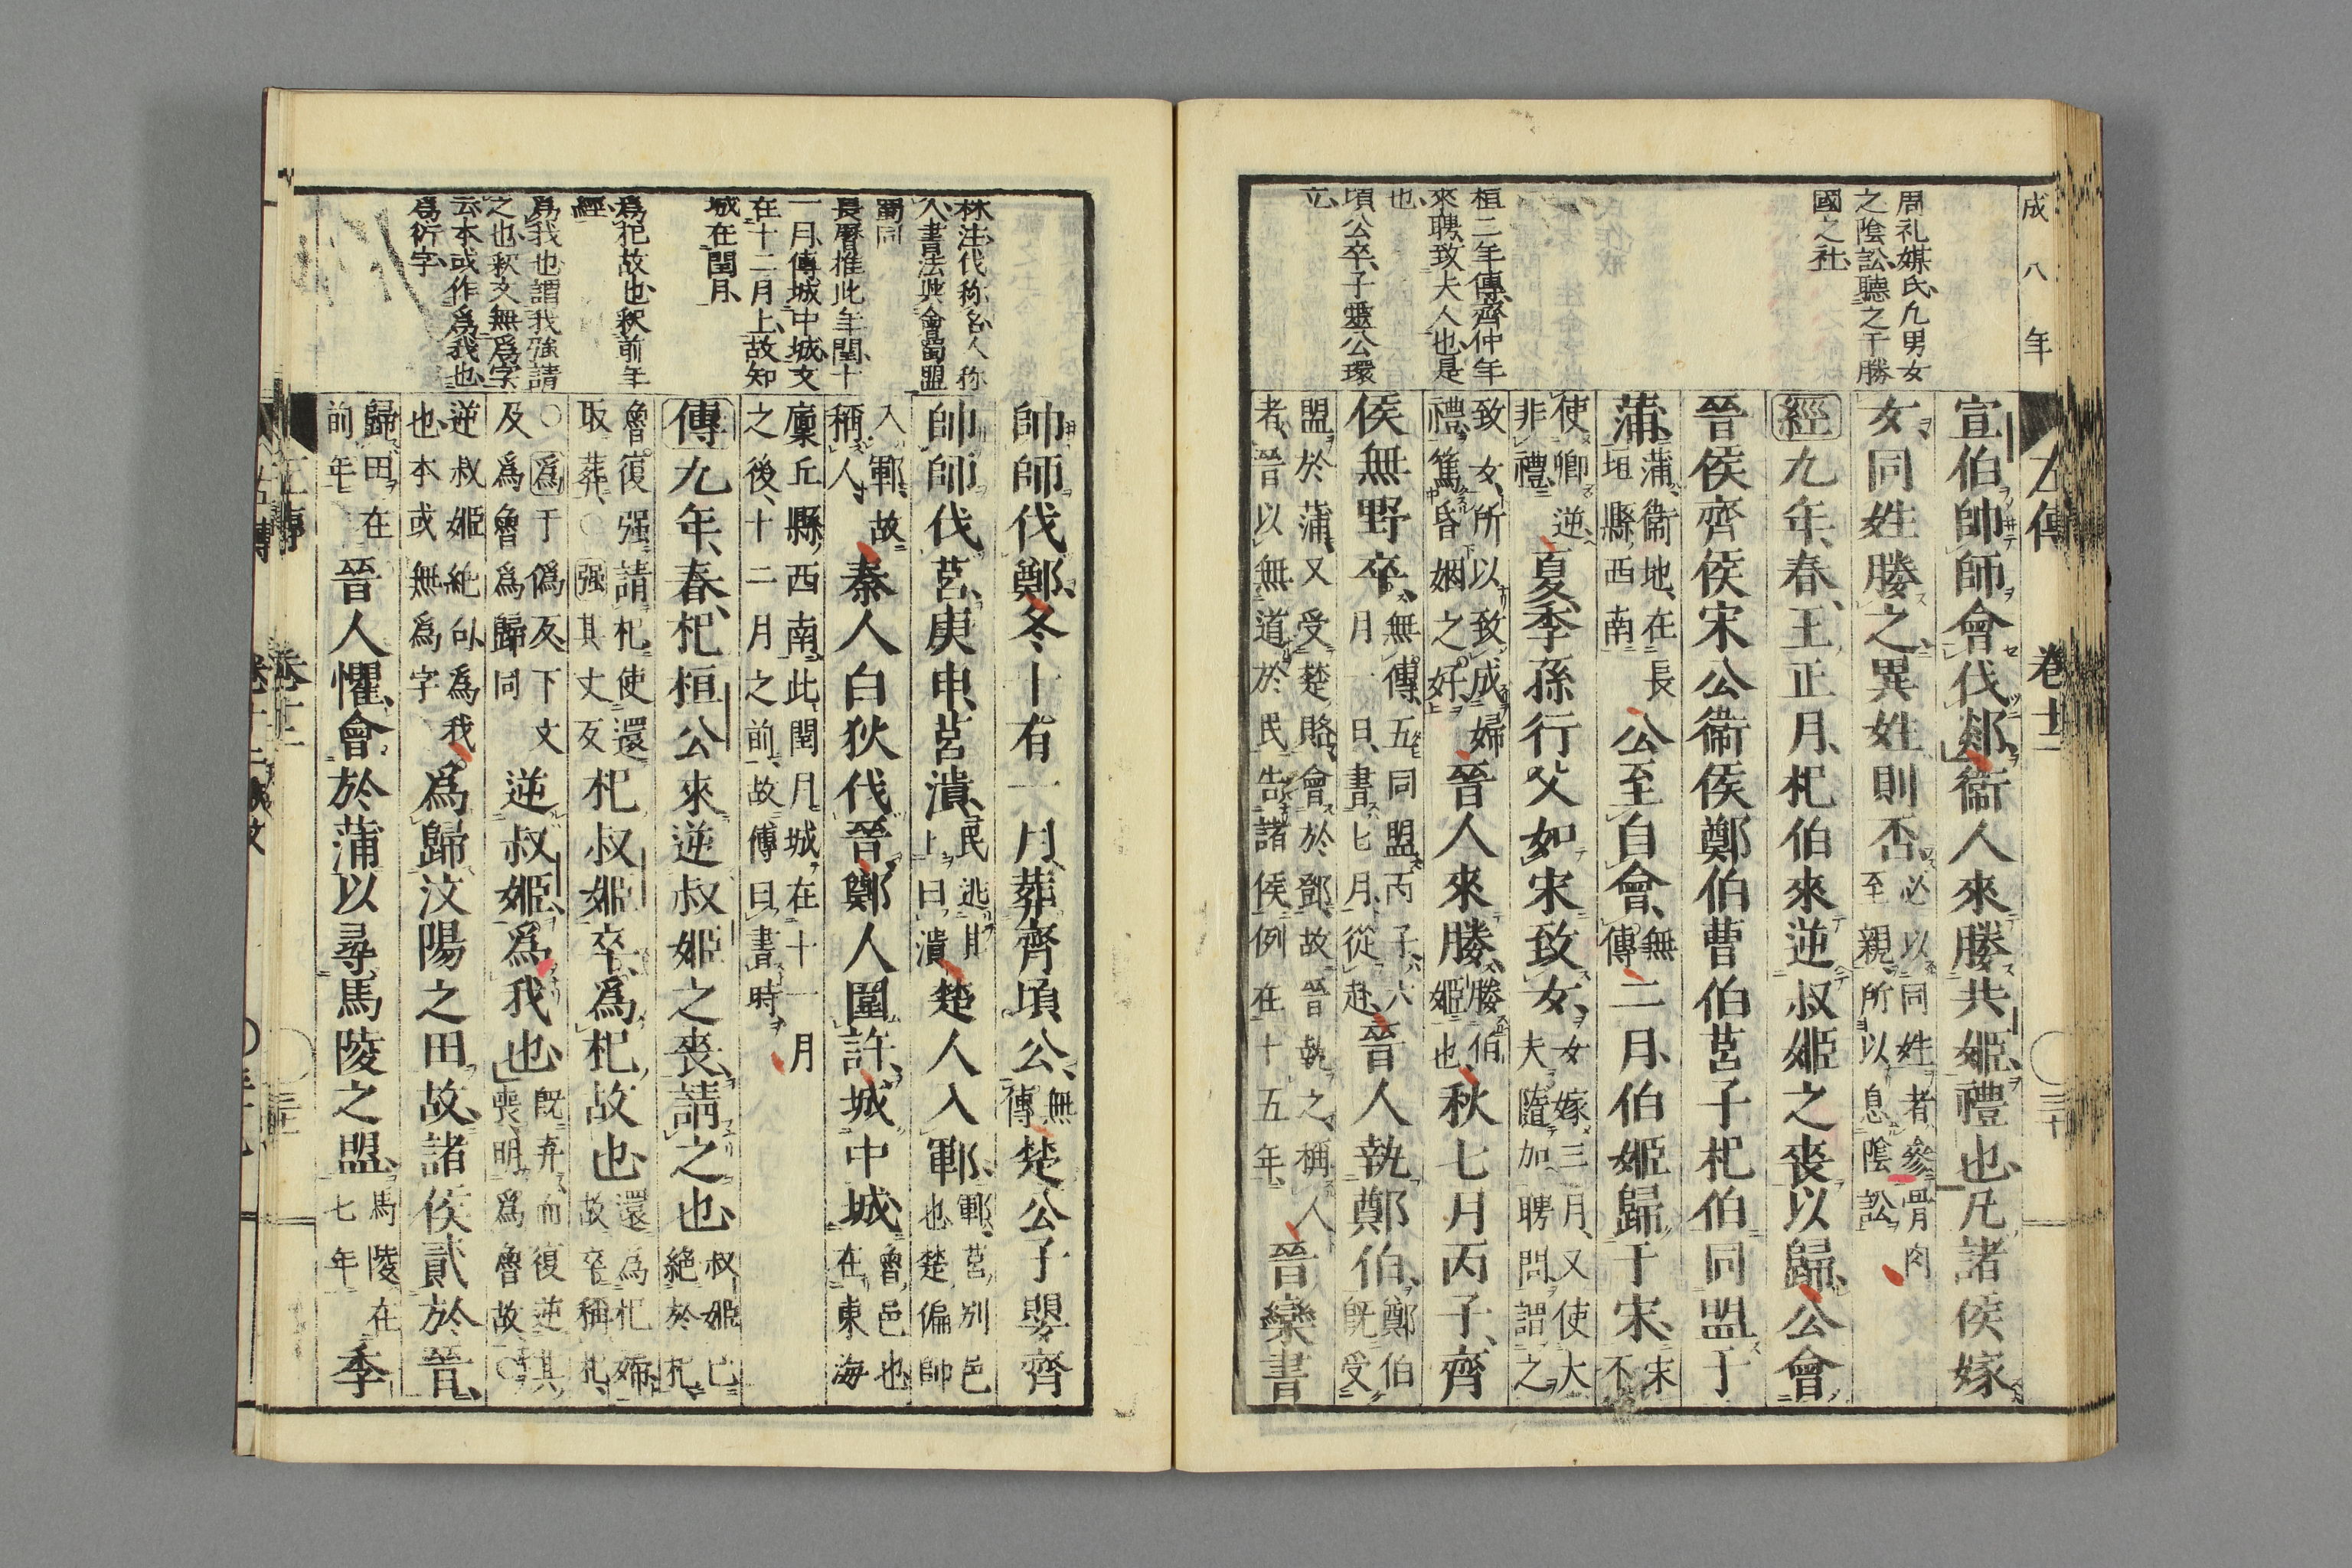 成八年
左傳
卷十二
三十
周礼媒氏凡男女
之陰訟聽之于勝
國之社
桓三年傳齊仲年
來聘致夫人也是
也
頃公卒子靈公環
立
宣伯帥師會伐郯衞人來媵共姬禮也凡諸侯嫁
女同姓媵之異姓則否必以同姓者參骨肉
至親所以息陰訟
經九年春王正月杞伯來逆叔姬之喪以歸公會
晉侯齊侯宋公衞侯鄭伯曹伯莒子杞伯同盟于
蒲蒲衞地在長
垣縣西南公至自會無
傳二月伯姬歸于宋宋
不
使卿逆
非禮夏季孫行父如宋致女女嫁三月又使大
夫隨加聘問謂之
致女所以致成婦
禮篤昏姻之好晉人來媵媵伯
姬也秋七月丙子齊
侯無野卒無傳五同盟丙子六
月一日書七月從赴晉人執鄭伯鄭伯
既受
盟於蒲又受楚賂會於鄧故晉執之稱人
者晉以無道於民告諸侯例在十五年晉欒書
林注伐称名人称
人書法與會蜀盟
蜀同
長曆推此年閏十
一月傳城中城文
在十二月上故知
城在閏月
爲杞故也釈前年
經
爲我也謂我強請
之也釈文無爲字
云本或作爲我也
爲衍字
帥師伐鄭冬十有一月葬齊頃公無
傳楚公子嬰齊
帥師伐莒庚申莒潰民逃其
上曰潰楚人入鄆鄆莒別邑
也楚偏帥
入鄆故
稱人秦人白狄伐晉鄭人圍許城中城魯邑也
在東海
廩丘縣西南此閏月城在十一月
之後十二月之前故傳曰書時
傳九年春杞桓公來逆叔姬之喪請之也叔姬已
絕於杞
魯復强請杞使還
取葬○强其丈反杞叔姬卒爲杞故也還爲杞婦
故卒稱杞
○爲于僞反下文
及爲魯爲歸同逆叔姬爲我也既弃而復逆其
喪明爲魯故○
逆叔姬絶句爲我
也本或無爲字爲歸汶陽之田故諸侯貳於晉
歸田在
前年晉人懼會於蒲以尋馬陵之盟馬陵在
七年季